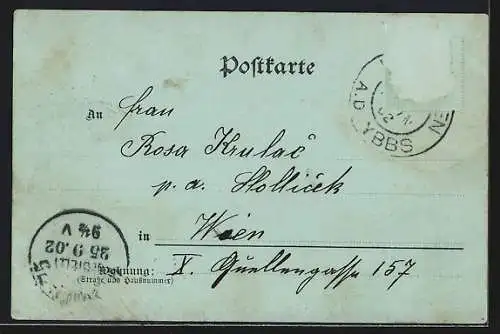 Postkarte
An Frau
Rosa Krulač
p. a. Stolliček
in Wien
Wohnung: X. Quellengasse 157
(Straße und Hausnummer)
EN
A.D. YBBS
BESTELLT
25.9.02
9¼ V